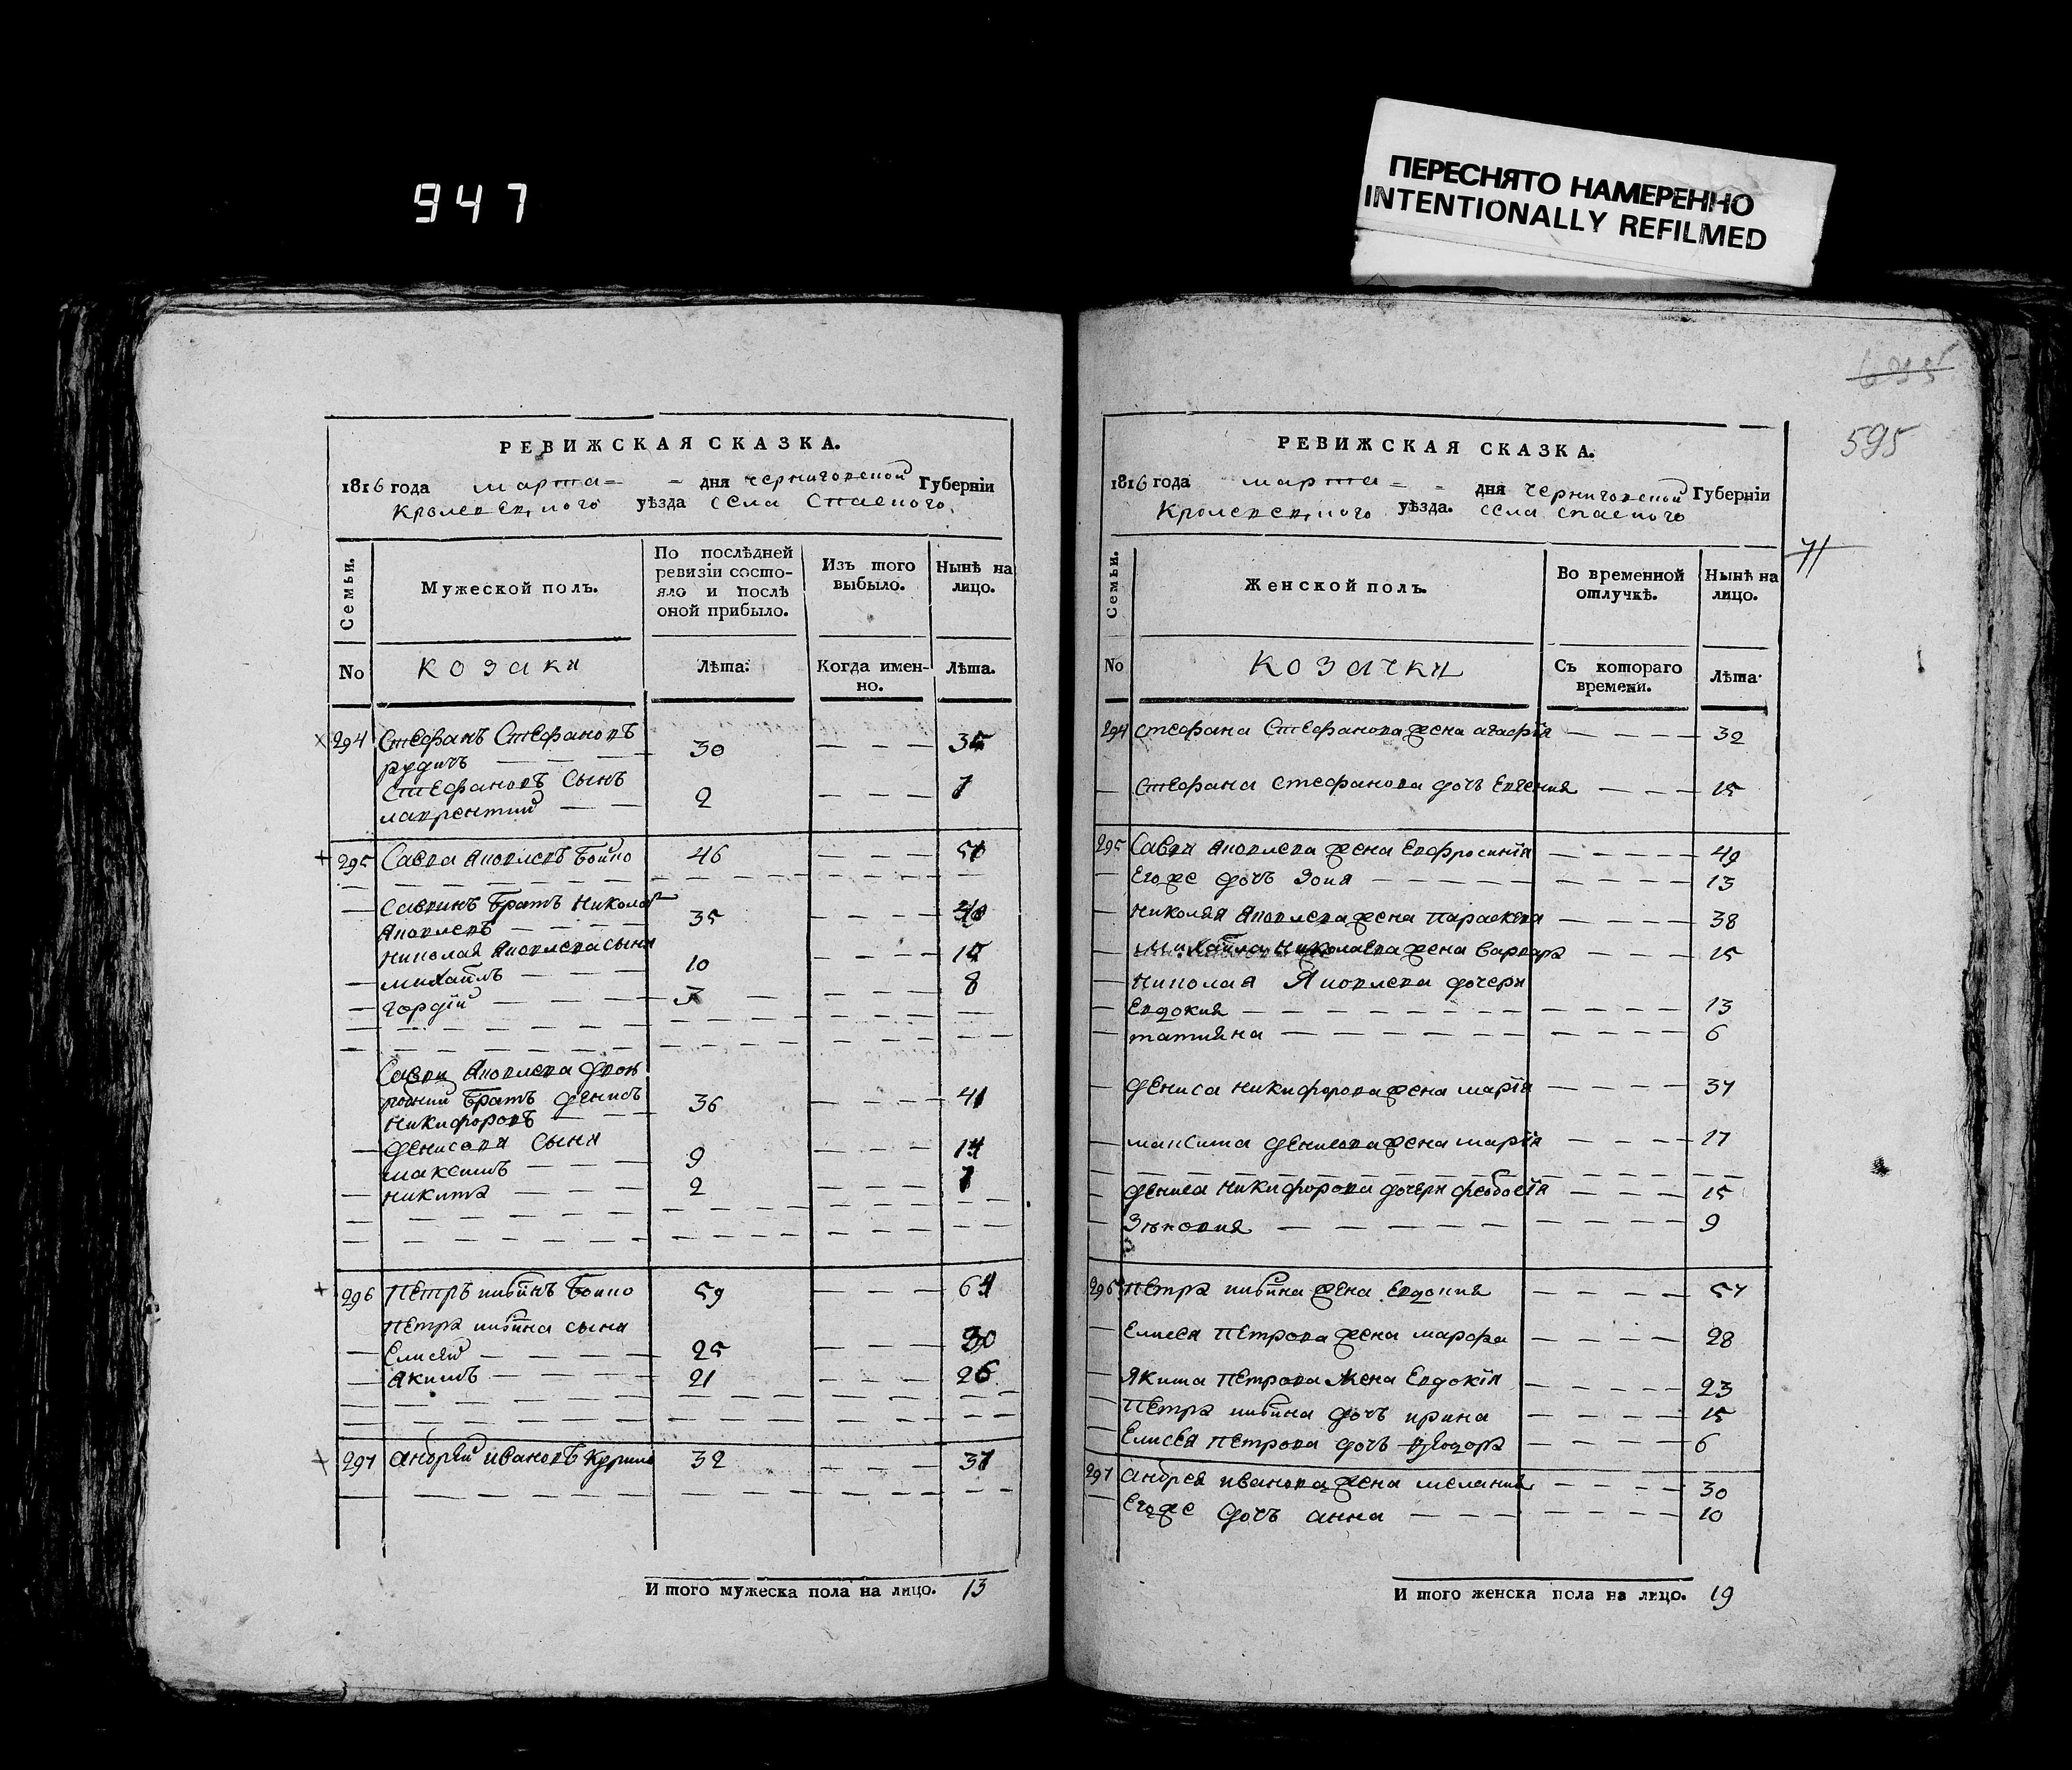 947
ПЕРЕСНЯТО НАМЕРЕННО
INTENTIONALLY REFILMED
РЕВИЖСКАЯ СКАЗКА.
1816 года марта = - дня черниговской Губернїи
Кролевецкого уѣзда села Спаского.
Семьи.
Мужеской полъ.
По послѣдней
ревизїи состо-
яло и послѣ
оной прибыло.
Изъ того
выбыло.
Нынѣ на
лицо.
No
козаки
Лѣта.
Когда имен-
но.
Лѣта.
294 Стефанъ Стефановъ
рудичъ — — — 30 — — — 35
Стефановъ Сынъ
лаврентий — — 2 — — — 7
295 Савва Яковлевъ Бойко 46 — — — 51
Саввинъ братъ николай
Яковлевъ — — — 35 — — — 40
николая Яковлева сыны
— михайлъ — — — 10 — — — 15
— гордїй — — — — 3 — — — 8
Саввы Яковлева двою
родний братъ денисъ 36 — — — 41
никифоровъ — —
— денисовы сыны
максимъ — — — 9 — — — 14
— никита — — — 2 — — — 7
296 Петръ Бойко 59 — — — 64
Петра сыны
— Елисей — — — — 25 — — — 30
— якимъ — — — — 21 — — — 26
297 андрей ивановъ Курило 32 — — — 37
И того мужеска пола на лицо. 13
595
РЕВИЖСКАЯ СКАЗКА.
1816 года марта = - дня черниговской Губернїи
Кролевецкого уѣзда. села спаского
Семьи.
Женской полъ.
Во временной
отлучкѣ.
Нынѣ на
лицо.
No
козачки
Съ котораго
времени.
Лѣта.
294 стефана Стефанова жена агафїя — — — — 32
— Стефана стефанова дочь Евгения — — — 15
295 Саввы Яковлева жена Евфросинїя — — — — 49
— Егоже дочь Зоия — — — — 13
— николая Яковлева жена параскева — — — — 38
— михайла николаева жена варвара — — — — 15
— николая Яковлева дочери
— Евдокия — — — — 13
— татияна — — — — 6
— дениса никифорова жена марїя — — — — 37
— максима денисова жена марїя — — — — 17
— дениса никифорова дочери феодосїя — — — — 15
— Зѣновия — — — — 9
296 Петра жена Евдокия — — — — 57
— Елисея Петрова жена марфа — — — — 28
— якима Петрова жена Евдокїя — — — — 23
— Петра дочь ирина — — — — 15
— Елисея Петрова дочь феодора — — — — 6
297 андрея иванова жена мелания — — — — 30
— Егоже дочь анна — — — — 10
И того женска пола на лицо. 19